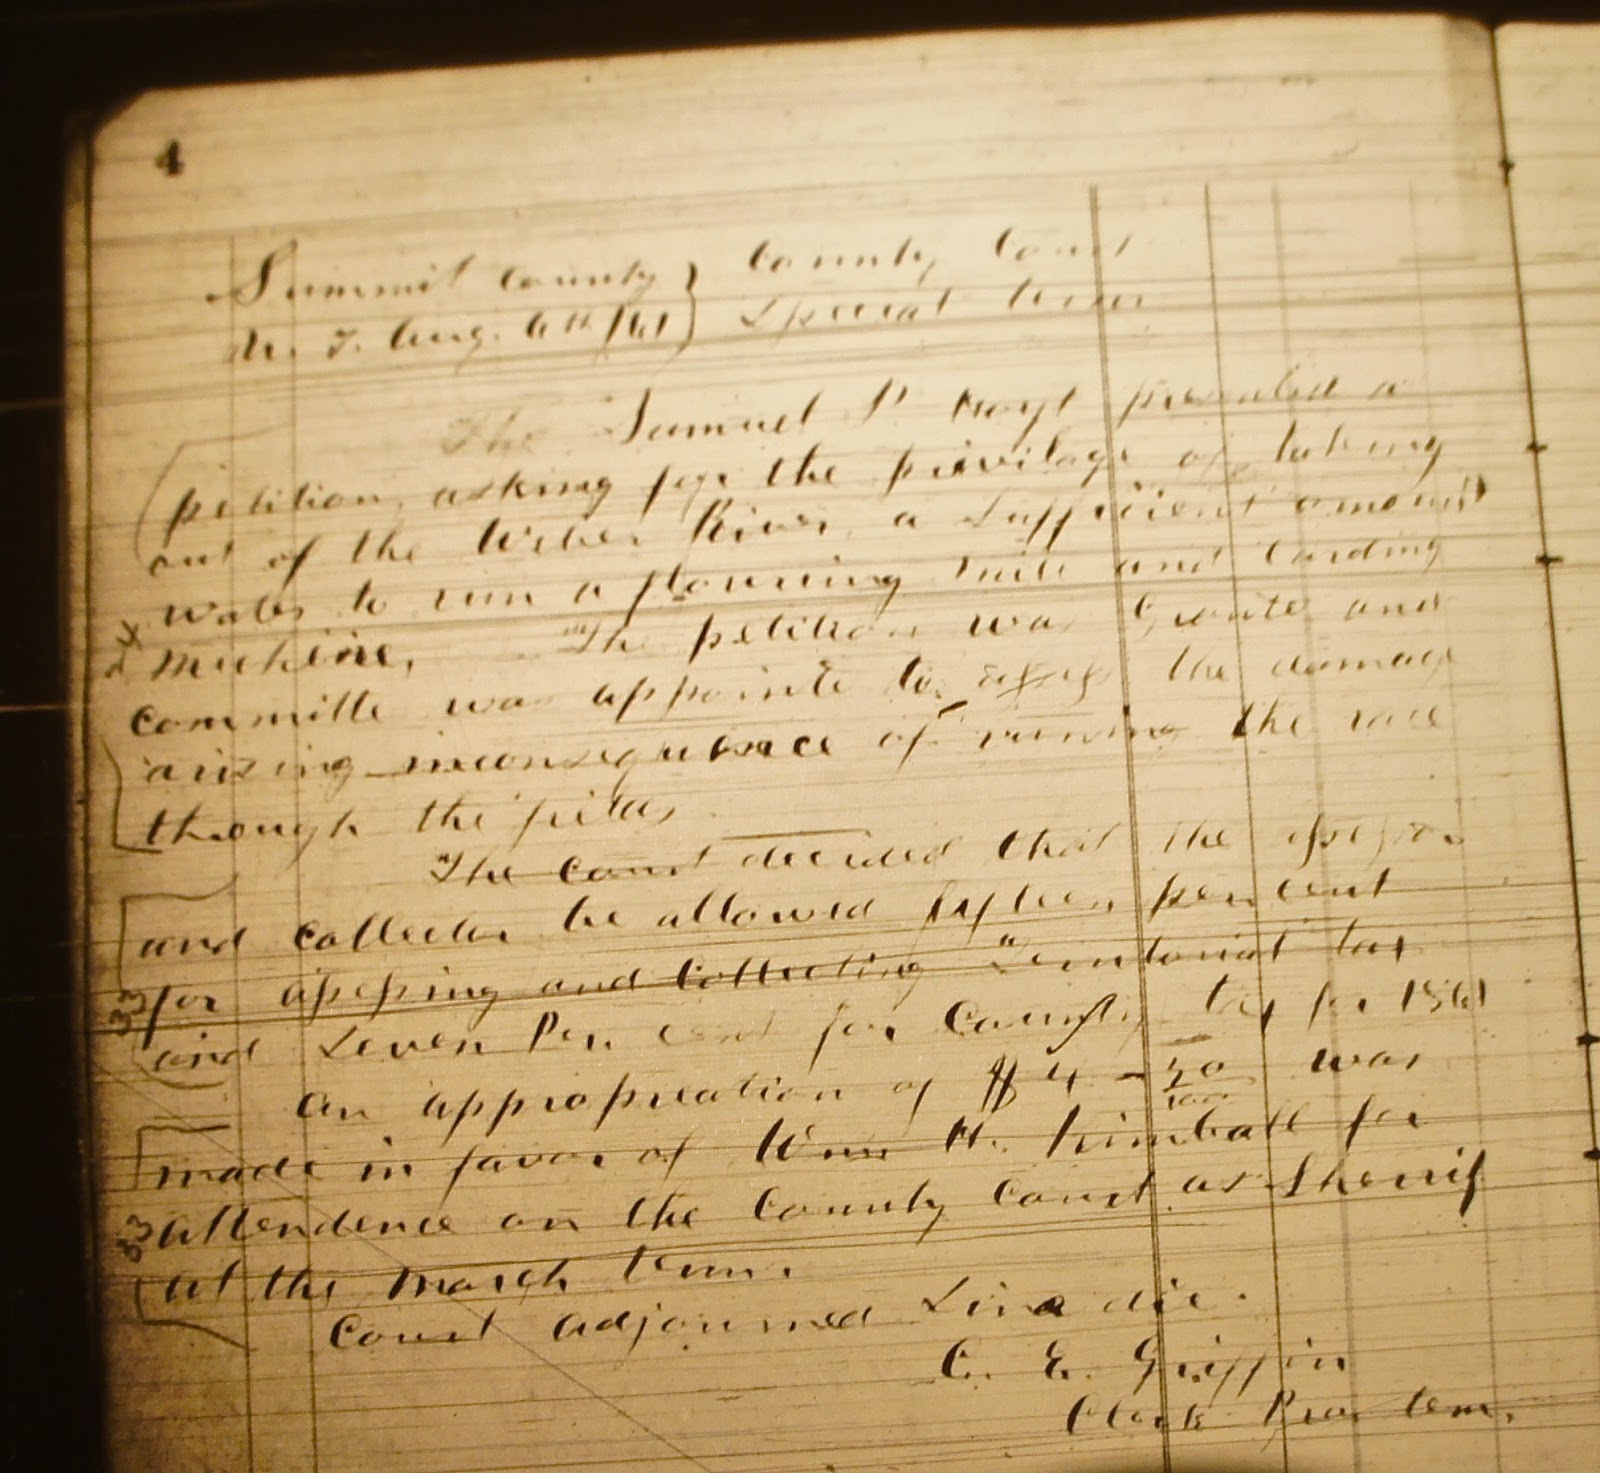 4
Summit County } County Court
U. T. Aug. 6th /61 } Special term
The Samuel P Hoyt presented a
petition, asking for the privilage of taking
out of the Weber River a Sufficient amount
water to run a flouring mill and Carding
24 Machine, The petition was Grante and
committe was appointe to assess the damage
arising inconsequence of running the race
through the fields
The Court decided that the assessor
and collector be allowed fifteen per cent
33 for assessing and Collecting Territorial tax
and Seven Per cent for County tax for 1861
An appropreation of $4-50/100 was
made in favor of Wm H. Kimball for
33 attendence on the County Court as Sherrif
at the March term.
Court adjourned Sine die.
C. E. Griffin
Clerk Pro tem.